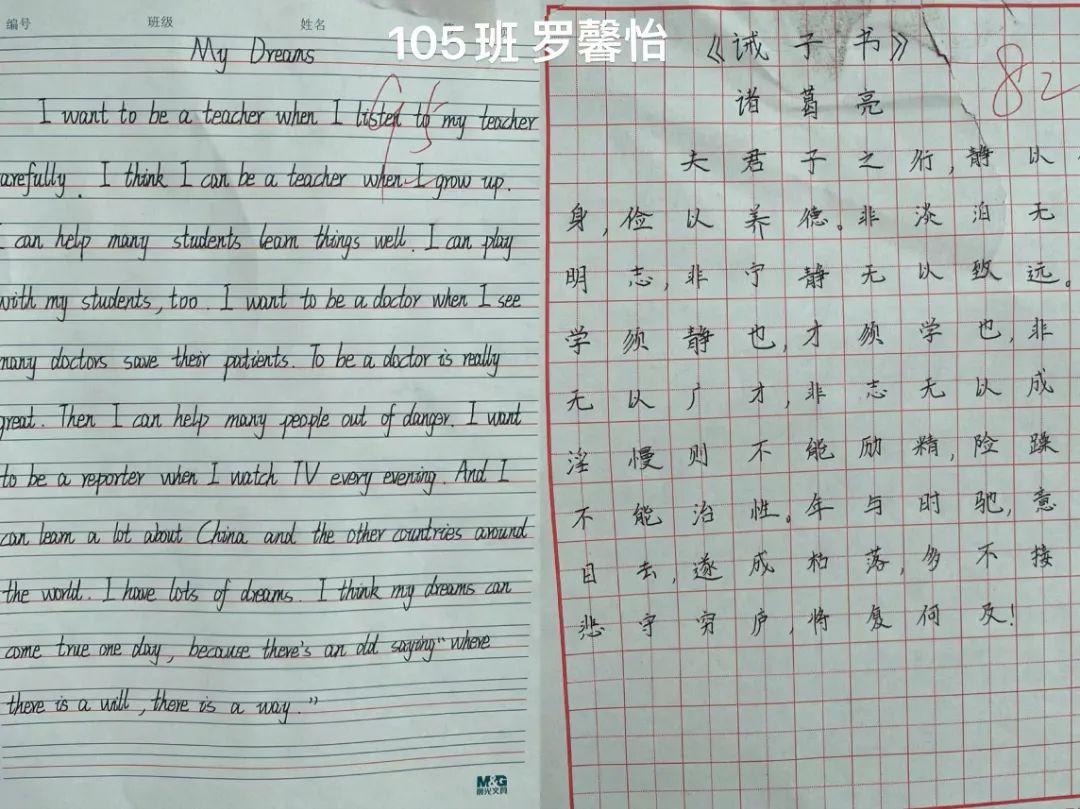 105班 罗馨怡
编号 班级 姓名
My Dreams
95
I want to be a teacher when I listen to my teacher
arefully. I think I can be a teacher when I grow up.
I can help many students learn things well. I can play
with my students, too. I want to be a doctor when I see
many doctors save their patients. To be a doctor is really
great. Then I can help many people out of danger. I want
to be a reporter when I watch TV every evening. And I
can learn a lot about China and the other countries around
the world. I have lots of dreams. I think my dreams can
come true one day, because there's an old saying "where
there is a will, there is a way."
M&G
晨光文具
《诫子书》
82
诸葛亮
夫君子之行,静以
身,俭以养德。非淡泊无
明志,非宁静无以致远。
学须静也,才须学也,非
无以广才,非志无以成
淫慢则不能励精,险躁
不能治性。年与时驰,意
日去,遂成枯落,多不接
悲守穷庐,将复何及!